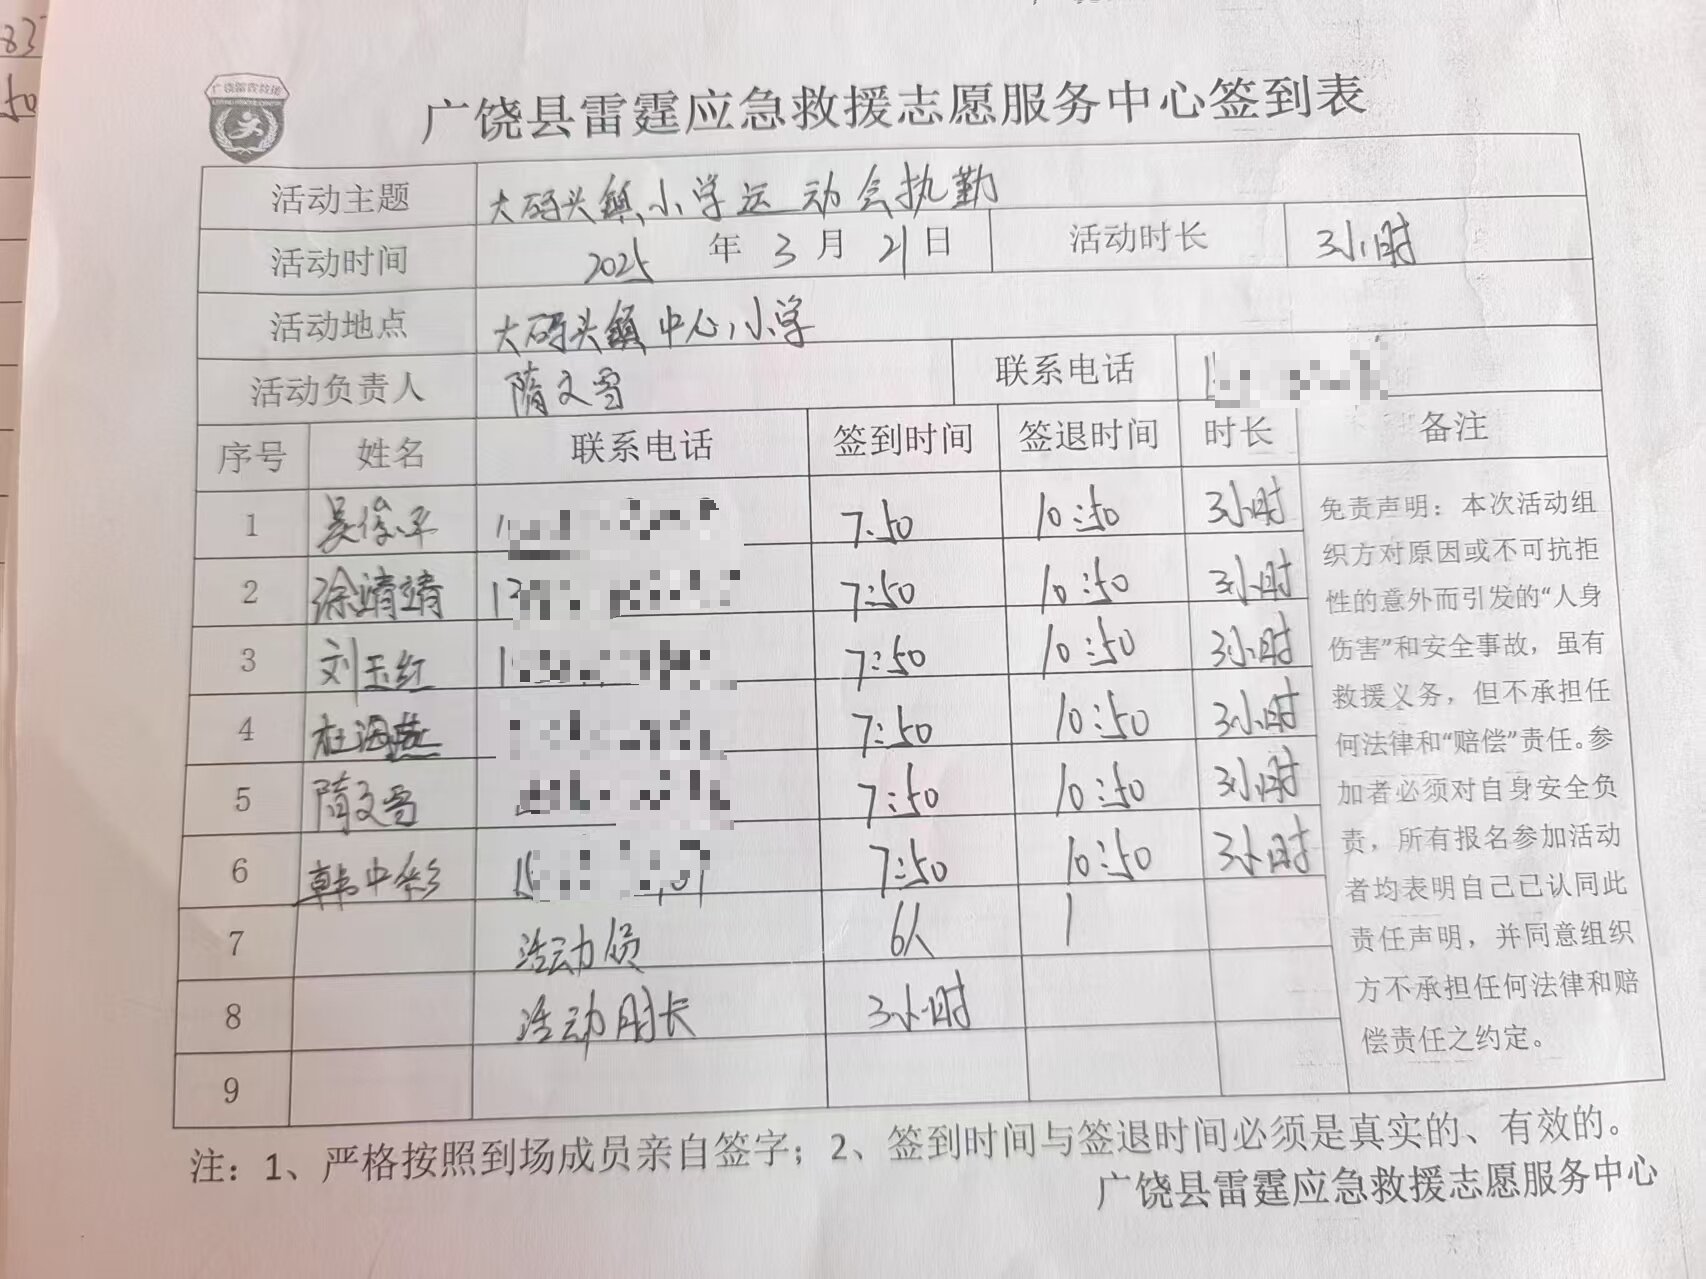 广饶雷霆救援
广饶县雷霆应急救援志愿服务中心签到表
活动主题 大码头镇小学运动会执勤
活动时间 2025 年 3 月 21 日 活动时长 3小时
活动地点 大码头镇中心小学
活动负责人 隋文 联系电话
序号 姓名 联系电话 签到时间 签退时间 时长 备注
1 吴俊平 7:50 10:50 3小时
2 徐靖靖 7:50 10:50 3小时
3 刘玉红 7:50 10:50 3小时
4 杜海燕 7:50 10:50 3小时
5 隋文 7:50 10:50 3小时
6 韩中彩 7:50 10:50 3小时
7 活动员 6人
8 活动时长 3小时
9
免责声明：本次活动组
织方对原因或不可抗拒
性的意外而引发的“人身
伤害”和安全事故，虽有
救援义务，但不承担任
何法律和“赔偿”责任。参
加者必须对自身安全负
责，所有报名参加活动
者均表明自己已认同此
责任声明，并同意组织
方不承担任何法律和赔
偿责任之约定。
注：1、严格按照到场成员亲自签字；2、签到时间与签退时间必须是真实的、有效的。
广饶县雷霆应急救援志愿服务中心